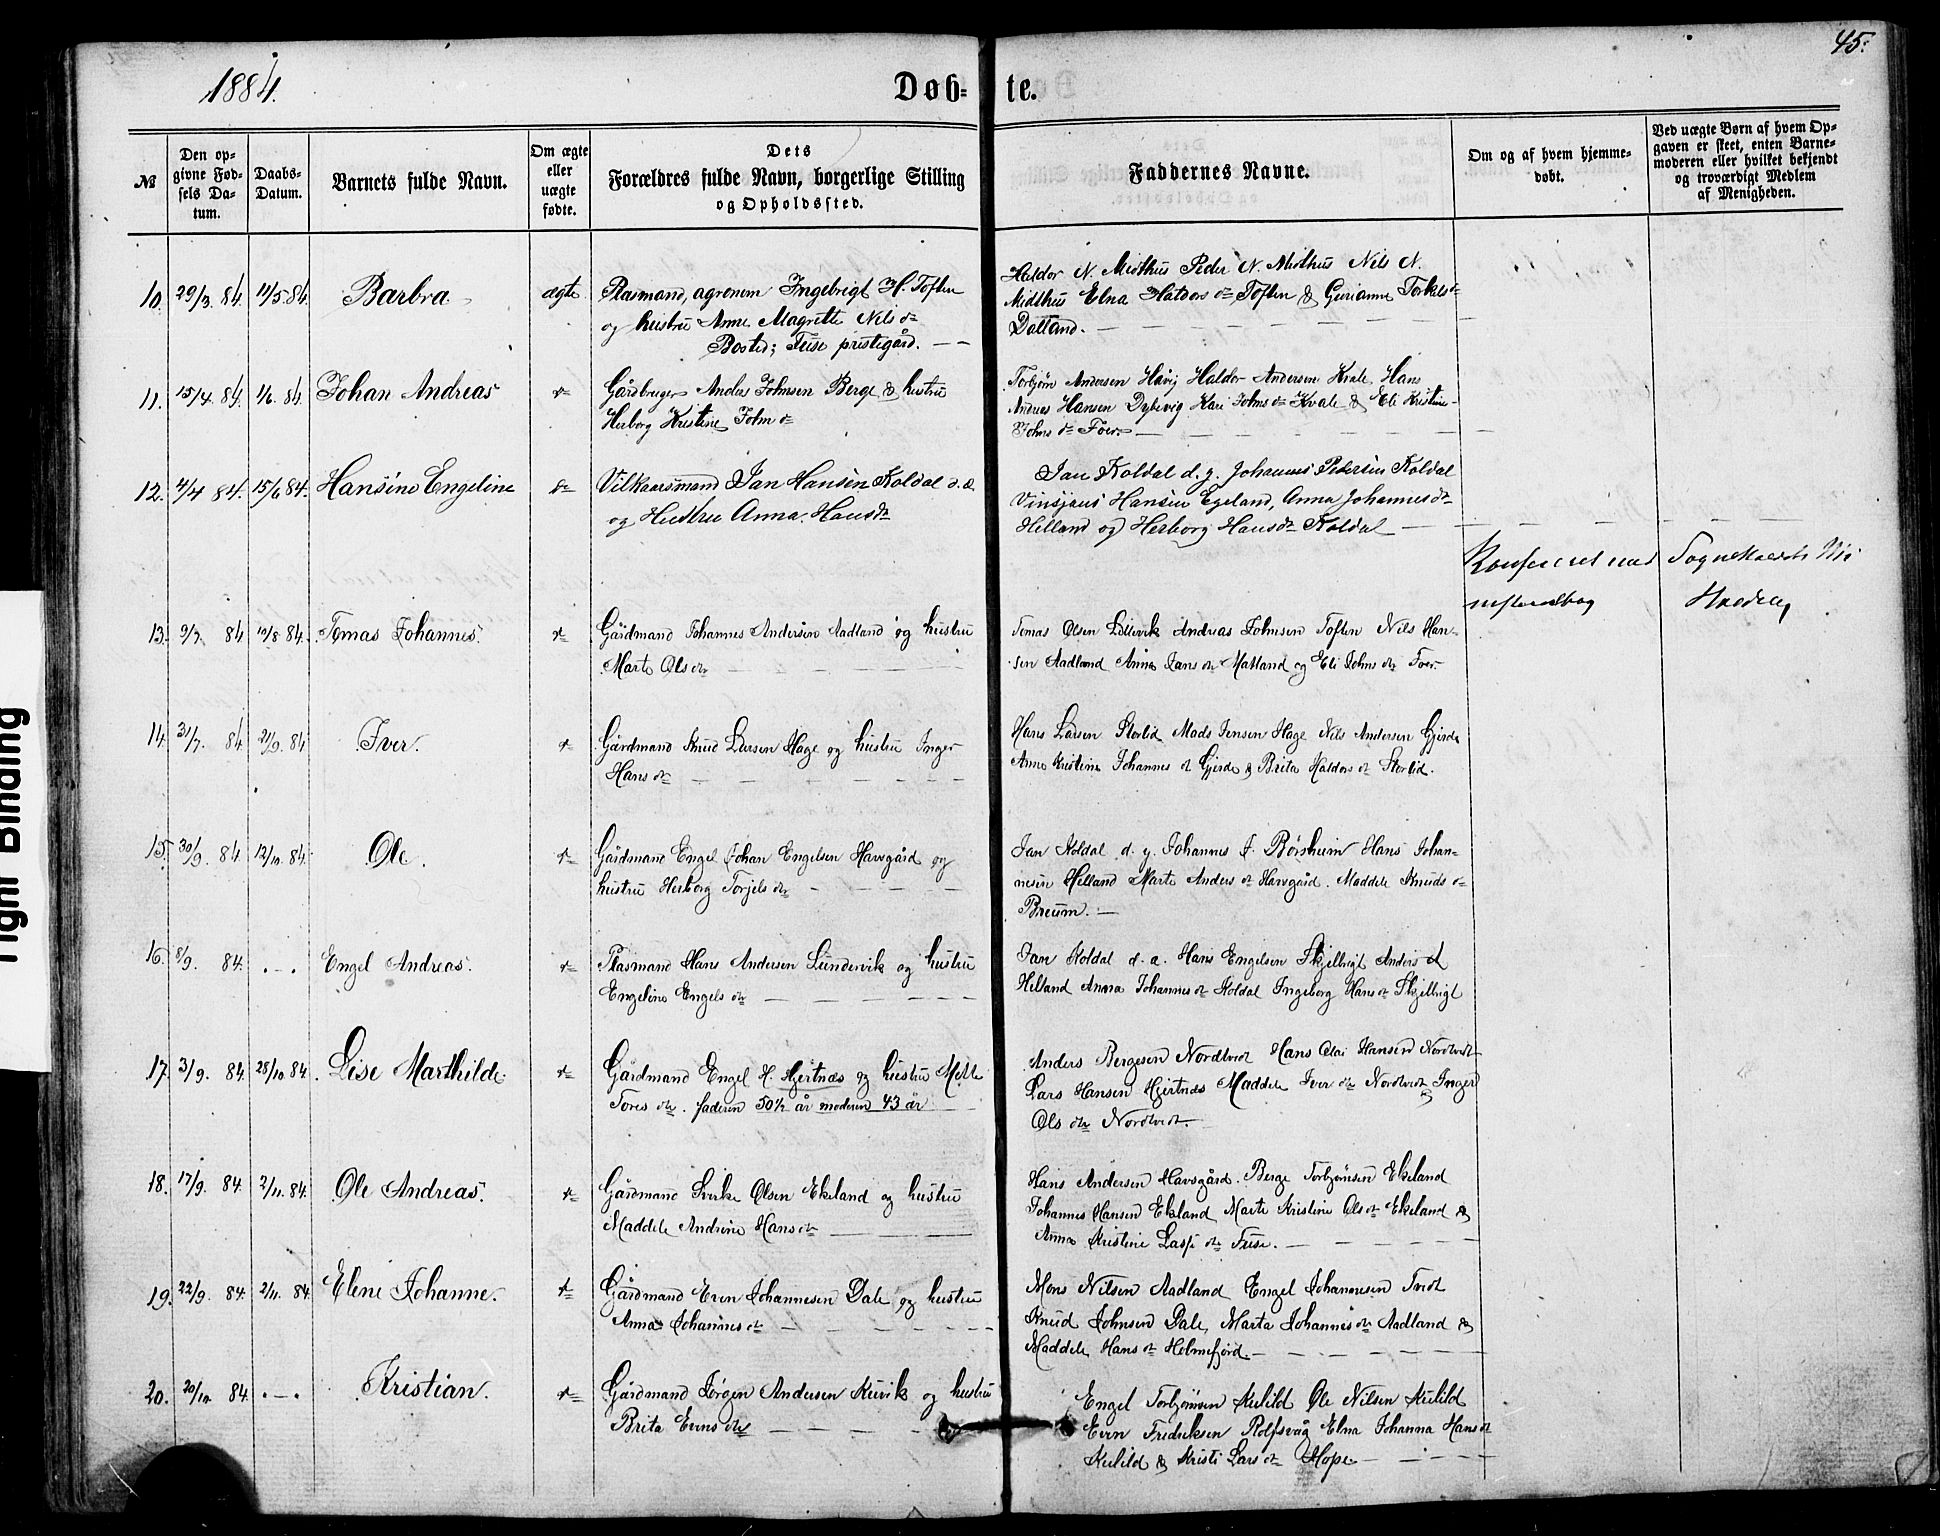 45.
1884.
Døb- te.
№
Den op-
givne Fød-
sels Da-
tum.
Daabs-
Datum.
Barnets fulde Navn.
Om ægte
eller
uægte
fødte.
Dets
Forældres fulde Navn, borgerlige Stilling
og Opholdssted.
Faddernes Navne.
Om og af hvem hjemme-
døbt.
Ved uægte Børn af hvem Op-
gaven er skeet, enten Barne-
moderen eller hvilket bekjendt
og troværdigt Medlem
af Menigheden.
10. 29/3. 84. 11/5 84. Barbra ægte
Plasmand, agronom Ingebrigt H. Toften
og hustru Anne Magrette Nils dr
Bosted; Fuse prestegård.
Haldor N. Midthus Peder N. Midthus Nils N.
Midthus Elna Haldors dr Toften & Gurianne Torkels dr
Dalland.
11. 15/4. 84. 1/6. 84. Johan Andreas
Gårdbruger Andas Johnsen Berge & hustru
Herborg Kristine John dr
Torbjørn Andersen Håvij Haldor Andersen Kvale, Hans
Andreas Hansen Dybevig Kari Johns dr Kvale & Eli Kristine
Johns dr Foer.
12. 4/4 84. 15/6 84. Hansine Engeline
Vilkaarsmand Jan Hansen Koldal d. æ.
og Hustru Anna Hansdr
Jan Koldal d. y. Johannes Pedersen Koldal
Vinsjans Hansen Egeland, Anna Johannesdr
Helland og Herborg Hansdr Koldal
13. 9/7. 84 10/8. 84. Tomas Johannes.
Gårdmand Johannes Andersen Aadland og hustru
Marte Ols dr
Tomas Olsen Lillevik Andreas Johnsen Toften Nils Han-
sen Aadland Anna Jans dr Matland og Eli Johns dr Foer
14. 31/7. 84 21/9. 84 Iver.
Gårdmand Knud Larsen Hage og hustru Inger
Hans dr
Hans Larsen Storlid Mads Jensen Hage Nils Andersen Gjerde
Anna Kristine Johannes d Gjerde & Brita Haldors dr Storlid.
15. 30/9. 84. 12/10. 84. Ole.
Gårdmand Engel Johan Engelsen Havsgård og
hustru Herborg Torjels dr
Jan Koldal d. y. Johannes J. Børsheim Hans Johan-
nesen Helland Marte Anders dr Havsgård. Maddele Knuds dr
Breum.
16. 8/9. 84. Engel Andreas.
Plasmand Hans Andersen Lundervik og hustru
Engeline Engels dr
Jan Koldal d. æ. Hans Engelsen Skjelbrigt Anders d
Helland Anna Johannes dr Koldal Ingeborg Hans dr Skjelbrigt
17. 3/9. 84. 28/10 84. Lise Marthilde.
Gårdmand Engel H. Hjertnæs og hustru Mette
Tores dr. faderen 50½ år moderen 43 år
Anders Bergesen Nordtvedt Hans Olai Hansen Nordtvedt
Lars Hansen Hjertnæs Maddele Iver dr Nordtvedt Inger
Ols dr Nordtvedt.
18. 17/9. 84. 2/11. 84. Ole Andreas.
Gårdmand Sverke Olsen Ekeland og hustru
Maddele Andrine Hans dr
Hans Andersen Havsgård. Berge Torbjørnsen Ekeland
Johannes Hansen Ekland, Marte Kristine Ols dr Ekeland &
Anna Kristine Lasse dr Fuse.
19. 22/9. 84. 2/11. 84 Elene Johanne.
Gårdmand Even Johannesen Dale og hustru
Anna Johannes dr
Mons Nilsen Aadland Engel Johannesen Tvedt
Knud Johnsen Dale, Marta Johannes dr Aadland &
Maddele Hans dr Holmefjord.
20. 20/10. 84. Kristian.
Gårdmand Jørgen Andersen Kuvik og hustru
Brita Evens dr
Engel Torbjørnsen Kulild Ole Nilsen Kulild
Even Fredriksen Rolfsvåg Elna Johanna Hans dr
Kulild & Kristi Lars dr Hope
Tight Binding